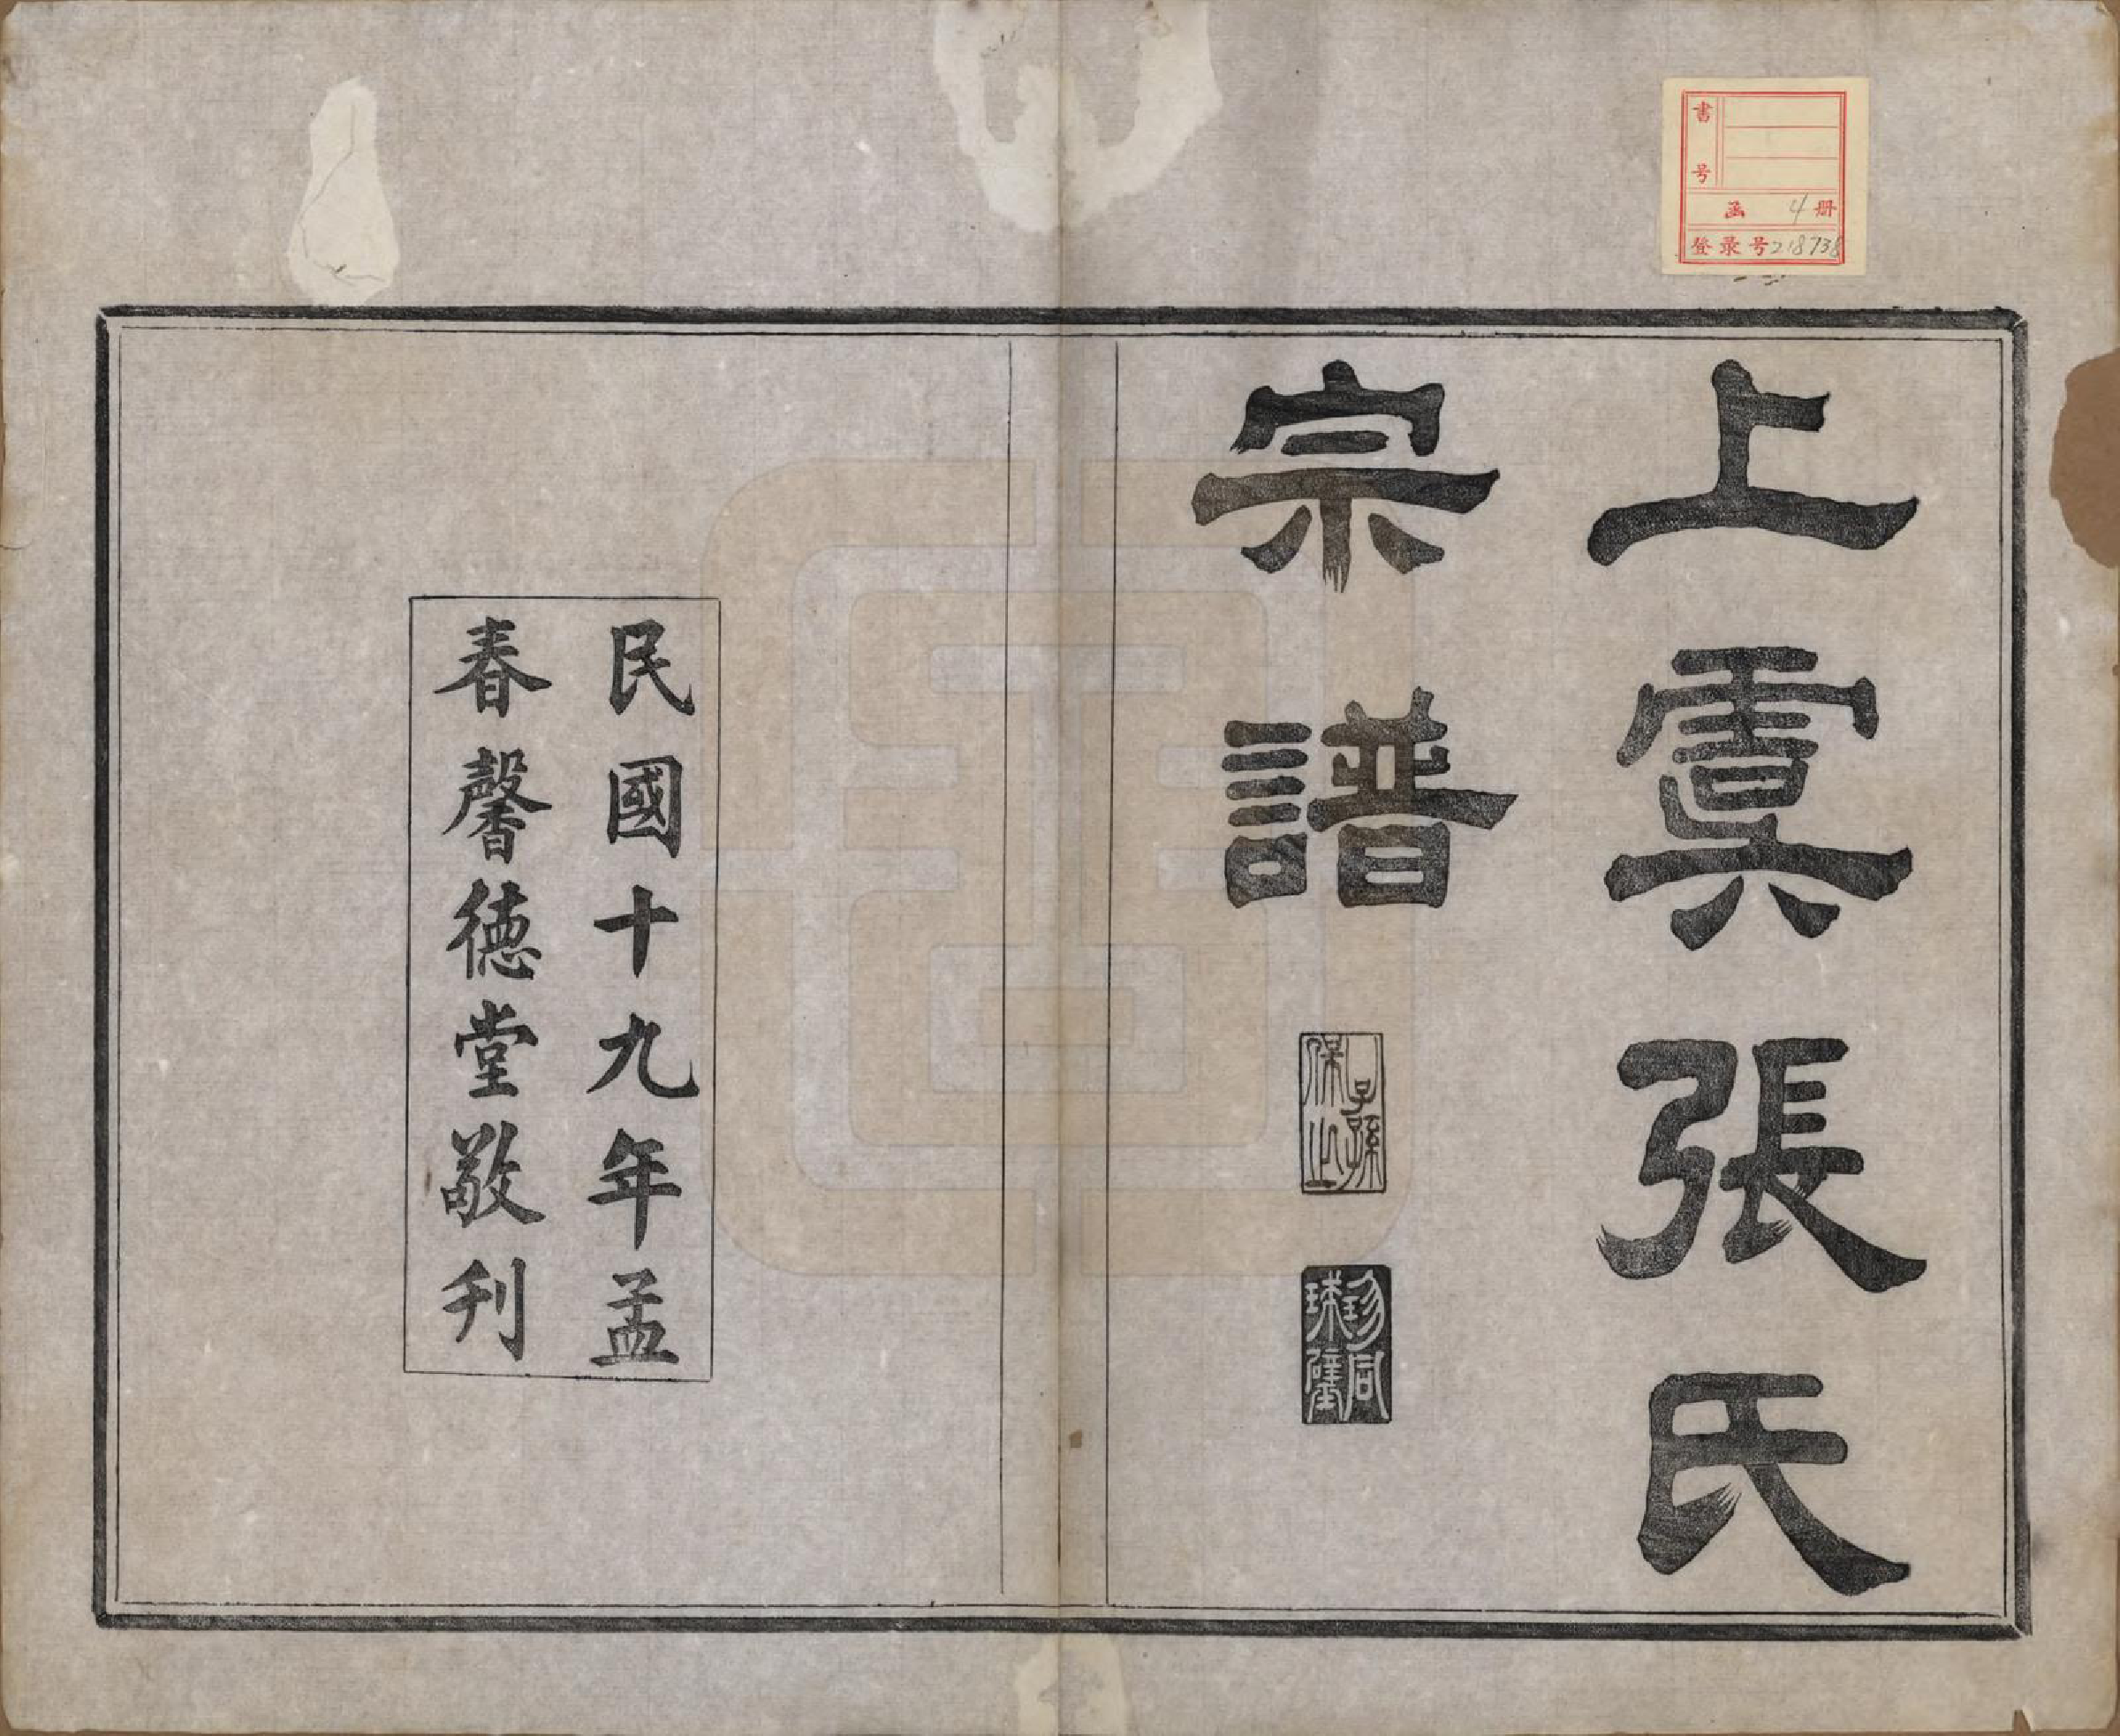 上虞張氏
宗譜
子孫保之
珍同球璧
民國十九年孟
春馨德堂敬刊
書号
函 4 册
登录号218738